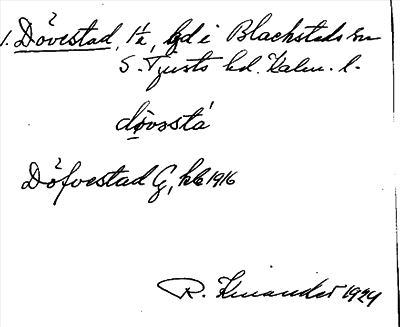 1. Dövestad, 1½, hd i Blackstads sn
S. Tjusts hd. Kalm. l.
dövsstá
Döfvestad G, kb 1916
R. Kinander 1924